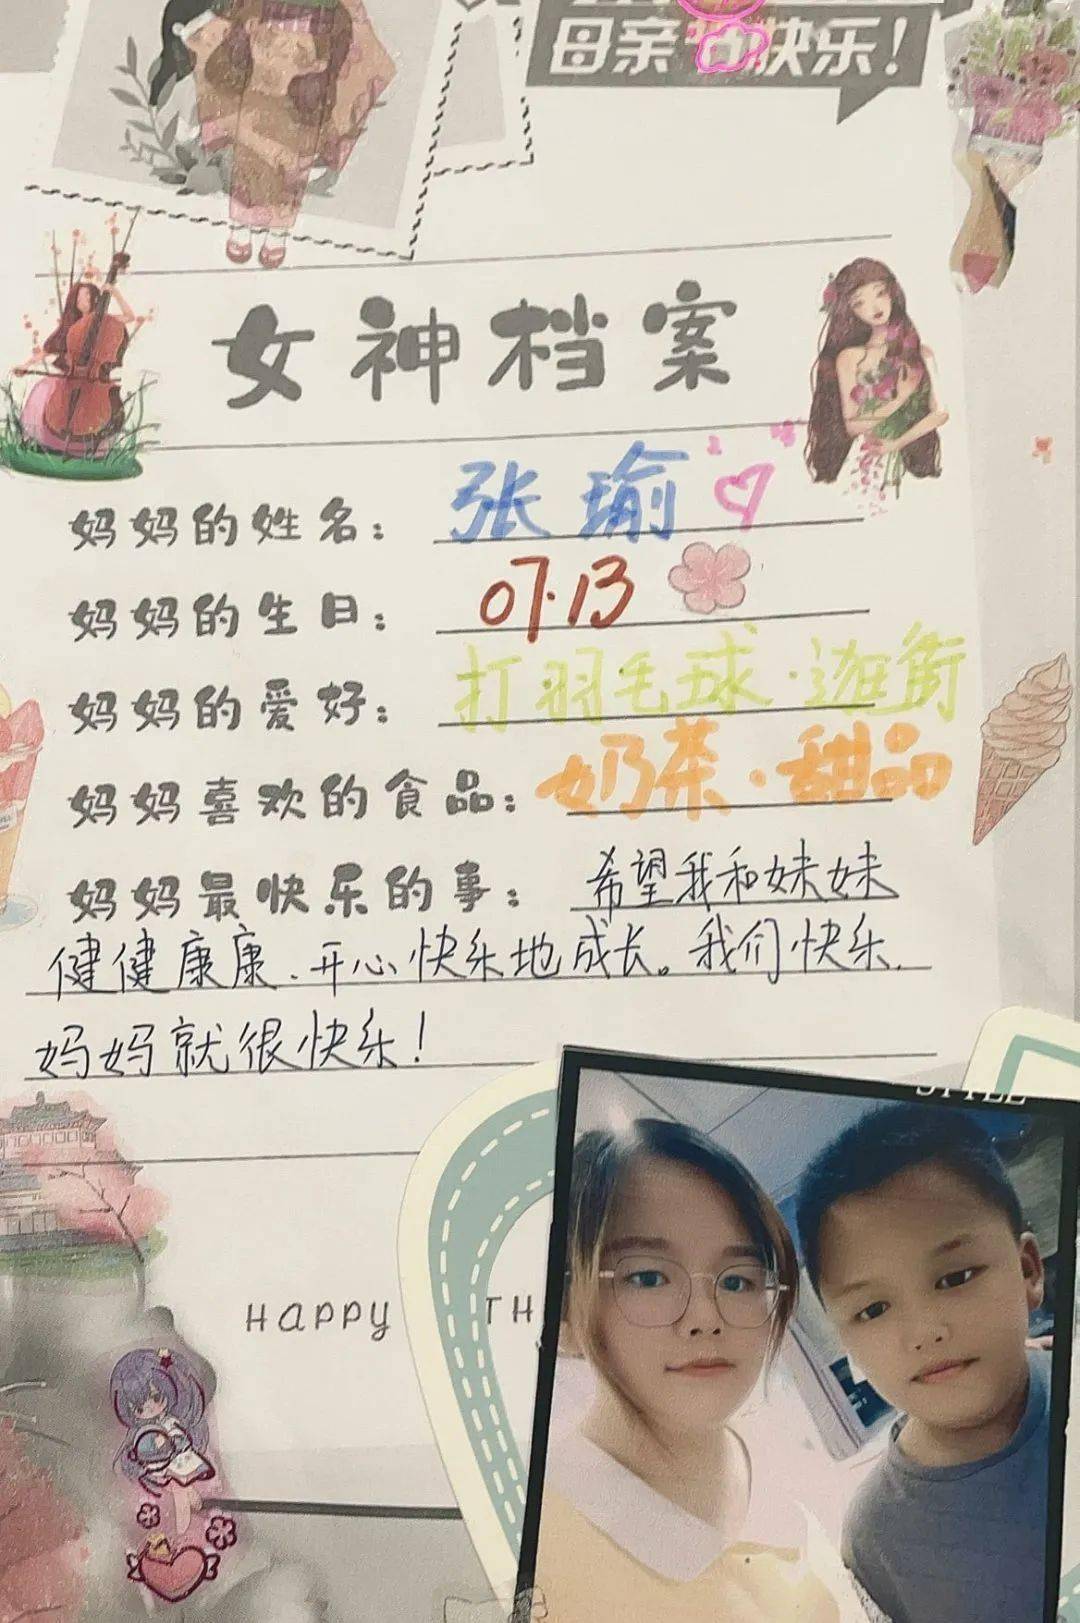 母亲节快乐!
女神档案
妈妈的姓名: 张瑜
妈妈的生日: 07.13
妈妈的爱好: 打羽毛球·逛街
妈妈喜欢的食品: 奶茶·甜品
妈妈最快乐的事: 希望我和妹妹
健健康康、开心快乐地成长。我们快乐,
妈妈就很快乐!
STYLE
HAPPY TH